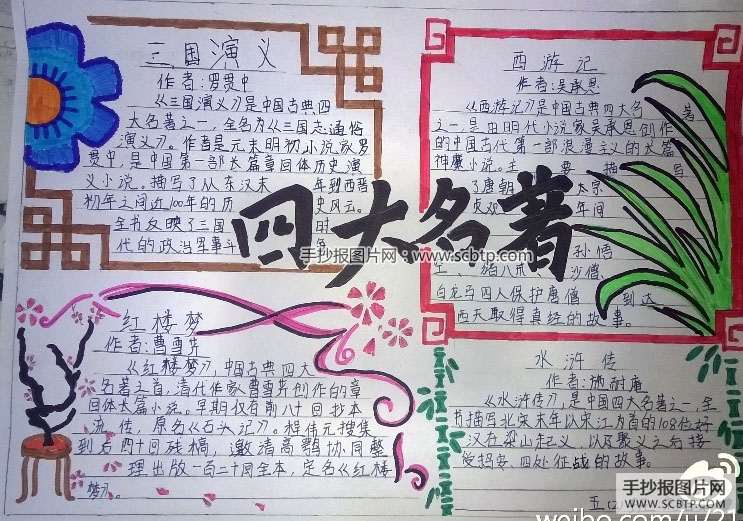 三国演义
作者：罗贯中
《三国演义》是中国古典四
大名著之一，全名为《三国志通俗
演义》。作者是元末明初小说家罗
贯中，是中国第一部长篇章回体历史演
义小说。描写了从东汉末年到西晋
初年之间近100年的历史风云。
全书反映了三国时
代的政治军事斗争
西游记
作者：吴承恩
《西游记》是中国古典四大名著
之一，是由明代小说家吴承恩创作
的中国古代第一部浪漫主义的长篇
神魔小说。主要描写
了唐朝太宗
贞观年间
孙悟
空、猪八戒、沙僧、
白龙马四人保护唐僧到达
西天取得真经的故事。
四大名著
手抄报图片网
www.scbtp.com
红楼梦
作者：曹雪芹
《红楼梦》，中国古典四大
名著之首，清代作家曹雪芹创作的章
回体长篇小说。早期仅有前八十回抄本
流传，原名《石头记》。程伟元搜集
到后四十回残稿，邀请高鹗协同整
理出版一百二十回全本，定名《红楼
梦》。
水浒传
作者：施耐庵
《水浒传》，是中国四大名著之一，全
书描写北宋末年以宋江为首的108位好
汉在梁山起义，以及聚义之后接
受招安、四处征战的故事。
手抄报图片网
WWW.SCBTP.COM